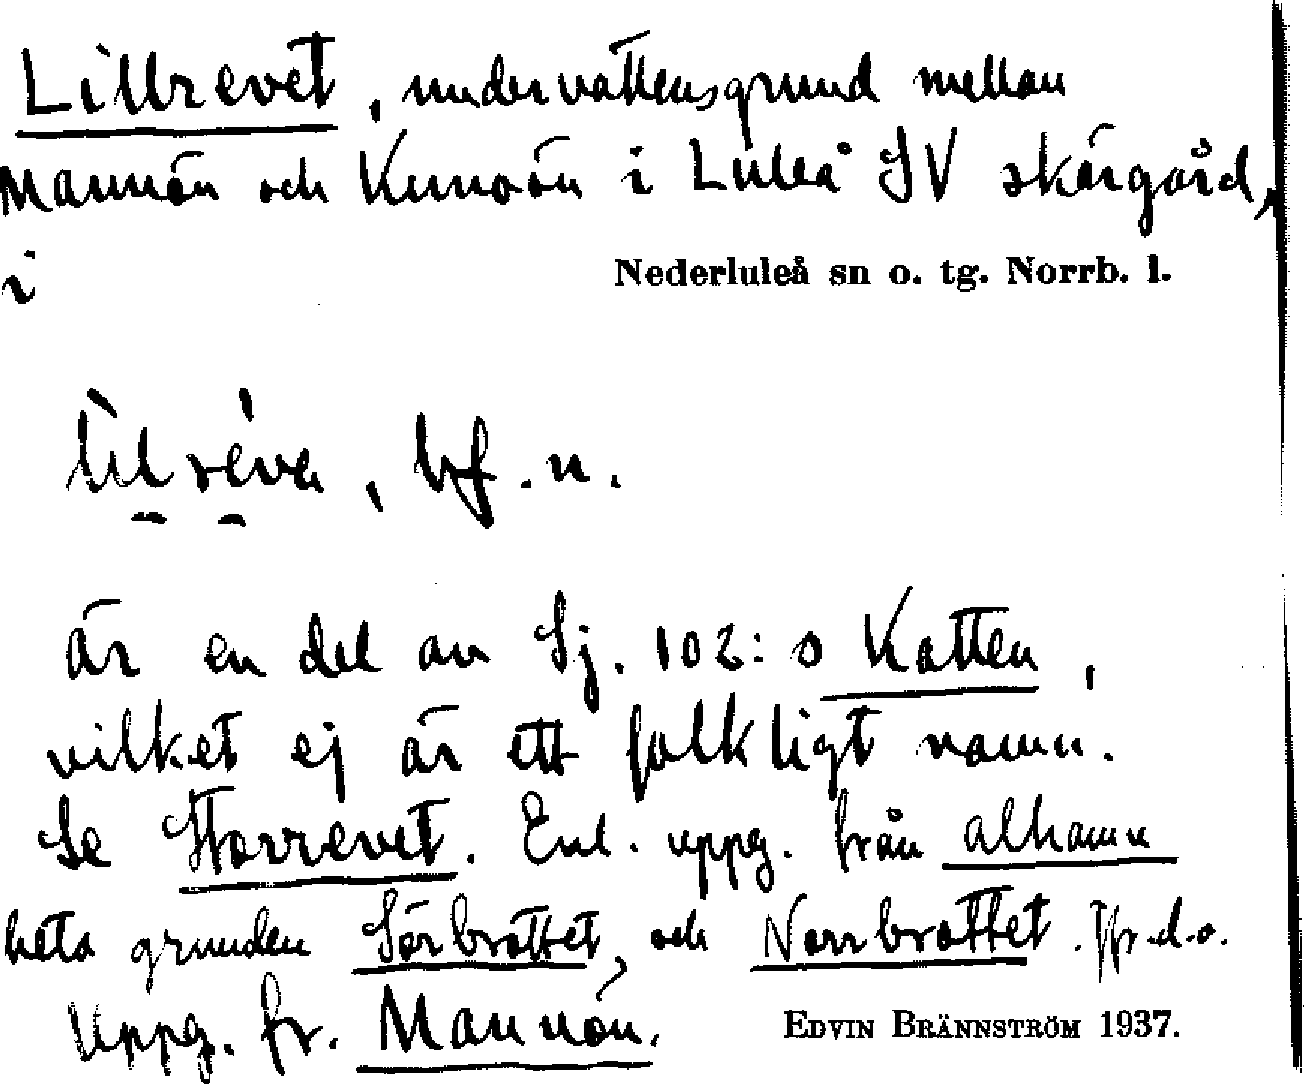 Lillrevet, undervattensgrund mellan
Mannön och Kunoön i Luleå SV skärgård,
i
Nederluleå sn o. tg. Norrb. l.
lìlréva, bf. n.
är en del av Sj. 102:s Katten,
vilket ej är ett folkligt namn.
Se Storrevet. Enl. uppg. från alhamn
heta grunden Sörbrottet, och Norrbrottet. Jfr. d. o.
Uppg. fr. Mannön.
EDVIN BRÄNNSTRÖM 1937.